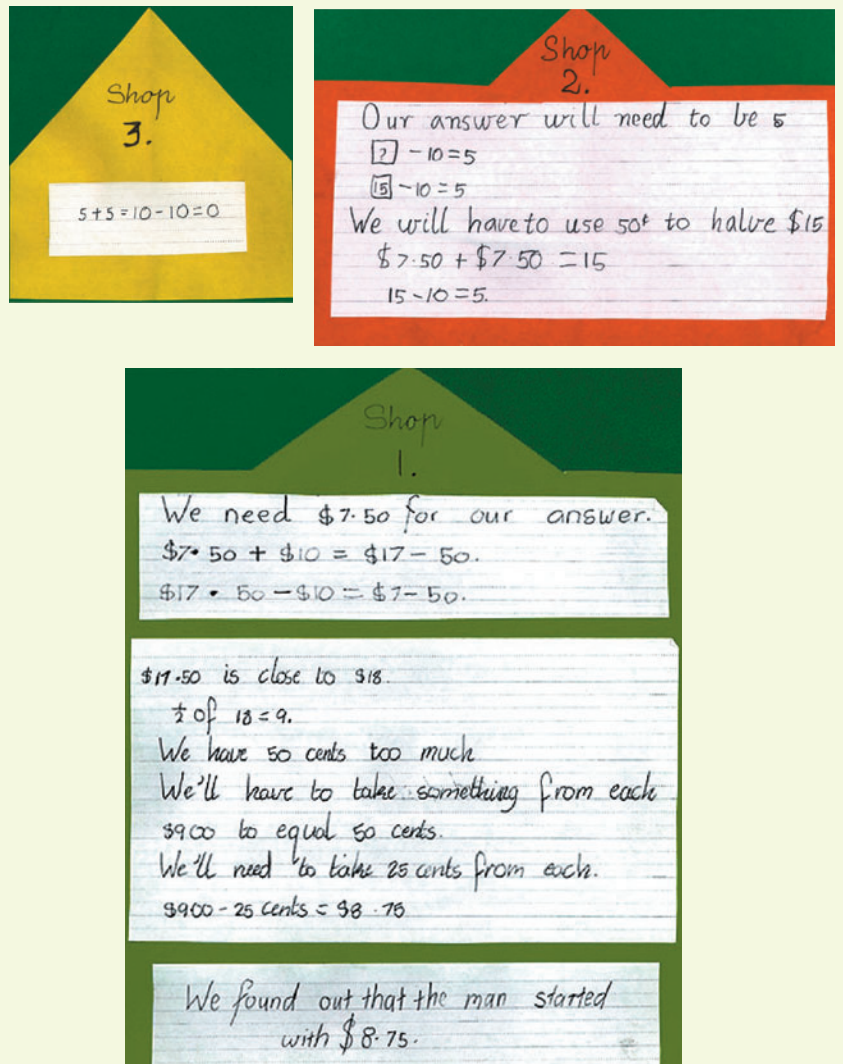 Shop
3.
5+5=10-10=0
Shop
2.
Our answer will need to be 5
? -10=5
15 -10=5
We will have to use 50¢ to halve $15
$7.50 + $7.50 = 15
15-10=5.
Shop
1.
We need $7.50 for our answer.
$7.50 + $10 = $17-50.
$17.50-$10=$7-50.
$17.50 is close to $18.
½ of 18=9.
We have 50 cents too much
We'll have to take something from each
$900 to equal 50 cents.
We'll need to take 25 cents from each.
$900-25 cents = $8.75
We found out that the man started
with $8.75.